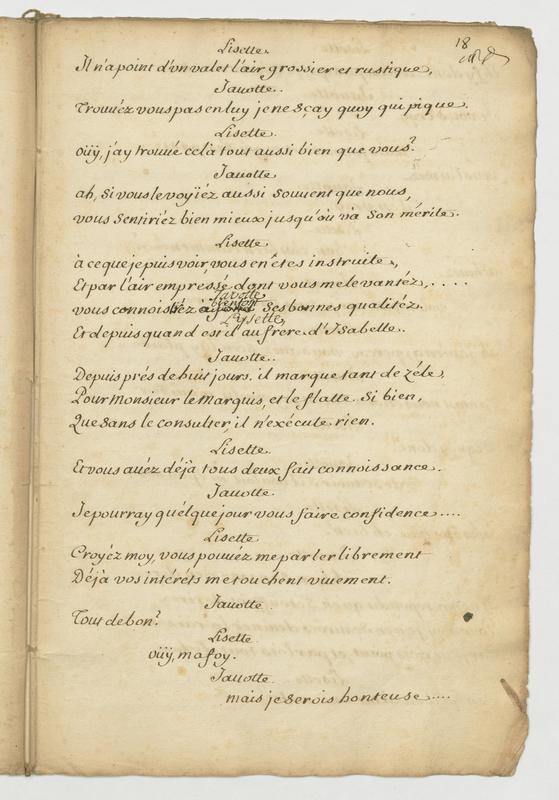 18
Lisette.
Il n'a point d'vn valet l'air grossier et rustique,
Jauotte.
Trouuéz vous pas en luy je ne sçay quoy qui pique.
Lisette.
oüÿ, j'ay trouué cela tout aussi bien que vous?
Jauotte
ah, si vous le voÿiéz aussi souuent que nous,
vous sentiriéz bien mieux jusqu'où va son mérite.
Lisette.
à ce que je puis voir, vous en êtes instruite,
Et par l'air empressé dont vous me le vantéz, ....
Jauotte
vous connoisséz bientost ses bonnes qualitéz.
Lysette,
Et depuis quand est il au frere d'Isabelle.
Jauotte.
Depuis prés de huit jours. il marque tant de zéle,
Pour Monsieur le Marquis, et le flatte si bien,
Que sans le consulter, il n'exécute rien.
Lisette.
Et vous auéz déjà tous deux fait connoissance.
Jauotte.
Je pourray quélque jour vous faire confidence ....
Lisette
Croyéz moy, vous pouuéz me parler librement
Déjà vos intérêts me touchent viuement.
Jauotte
Tout de bon?
Lisette
oüÿ, ma foy.
Jauotte
mais je serois honteuse ....